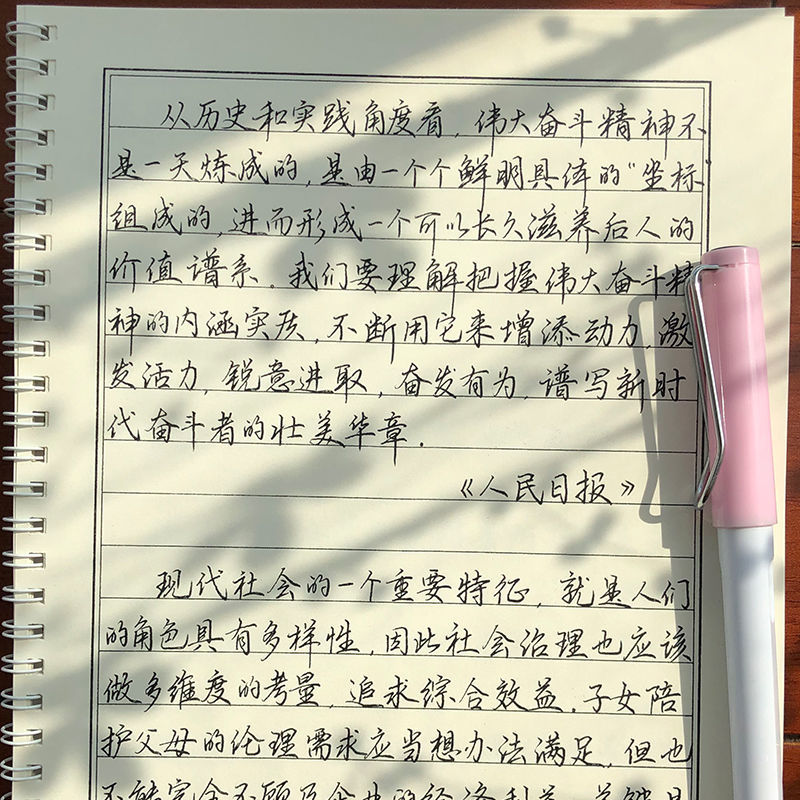 从历史和实践角度看，伟大奋斗精神不
是一天炼成的，是由一个个鲜明具体的“坐标
组成的，进而形成一个可以长久滋养后人的
价值谱系。我们要理解把握伟大奋斗精
神的内涵实质，不断用它来增添动力，激
发活力，锐意进取，奋发有为，谱写新时
代奋斗者的壮美华章.
《人民日报》
现代社会的一个重要特征，就是人们
的角色具有多样性，因此社会治理也应该
做多维度的考量，追求综合效益。子女陪
护父母的伦理需求应当想办法满足，但也
不能完全不顾及企业的经济利益